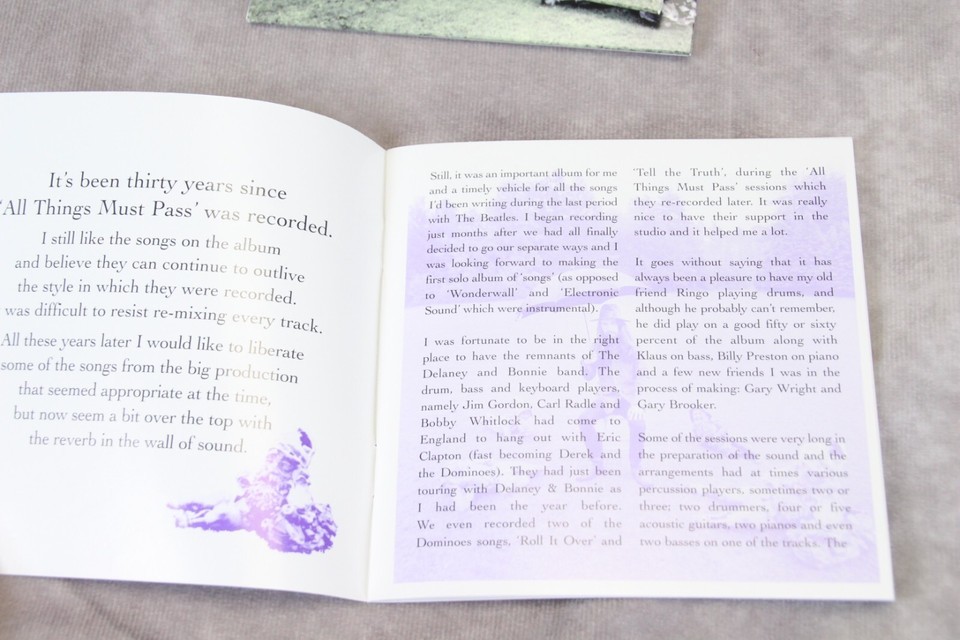 It's been thirty years since
'All Things Must Pass' was recorded.
I still like the songs on the album
and believe they can continue to outlive
the style in which they were recorded.
was difficult to resist re-mixing every track.
All these years later I would like to liberate
some of the songs from the big production
that seemed appropriate at the time,
but now seem a bit over the top with
the reverb in the wall of sound.
Still, it was an important album for me
and a timely vehicle for all the songs
I'd been writing during the last period
with The Beatles. I began recording
just months after we had all finally
decided to go our separate ways and I
was looking forward to making the
first solo album of 'songs' (as opposed
to 'Wonderwall' and 'Electronic
Sound' which were instrumental).
I was fortunate to be in the right
place to have the remnants of The
Delaney and Bonnie band. The
drum, bass and keyboard players,
namely Jim Gordon, Carl Radle and
Bobby Whitlock had come to
England to hang out with Eric
Clapton (fast becoming Derek and
the Dominoes). They had just been
touring with Delaney & Bonnie as
I had been the year before.
We even recorded two of the
Dominoes songs, 'Roll It Over' and
'Tell the Truth', during the 'All
Things Must Pass' sessions which
they re-recorded later. It was really
nice to have their support in the
studio and it helped me a lot.
It goes without saying that it has
always been a pleasure to have my old
friend Ringo playing drums, and
although he probably can't remember,
he did play on a good fifty or sixty
percent of the album along with
Klaus on bass, Billy Preston on piano
and a few new friends I was in the
process of making: Gary Wright and
Gary Brooker.
Some of the sessions were very long in
the preparation of the sound and the
arrangements had at times various
percussion players, sometimes two or
three; two drummers, four or five
acoustic guitars, two pianos and even
two basses on one of the tracks. The